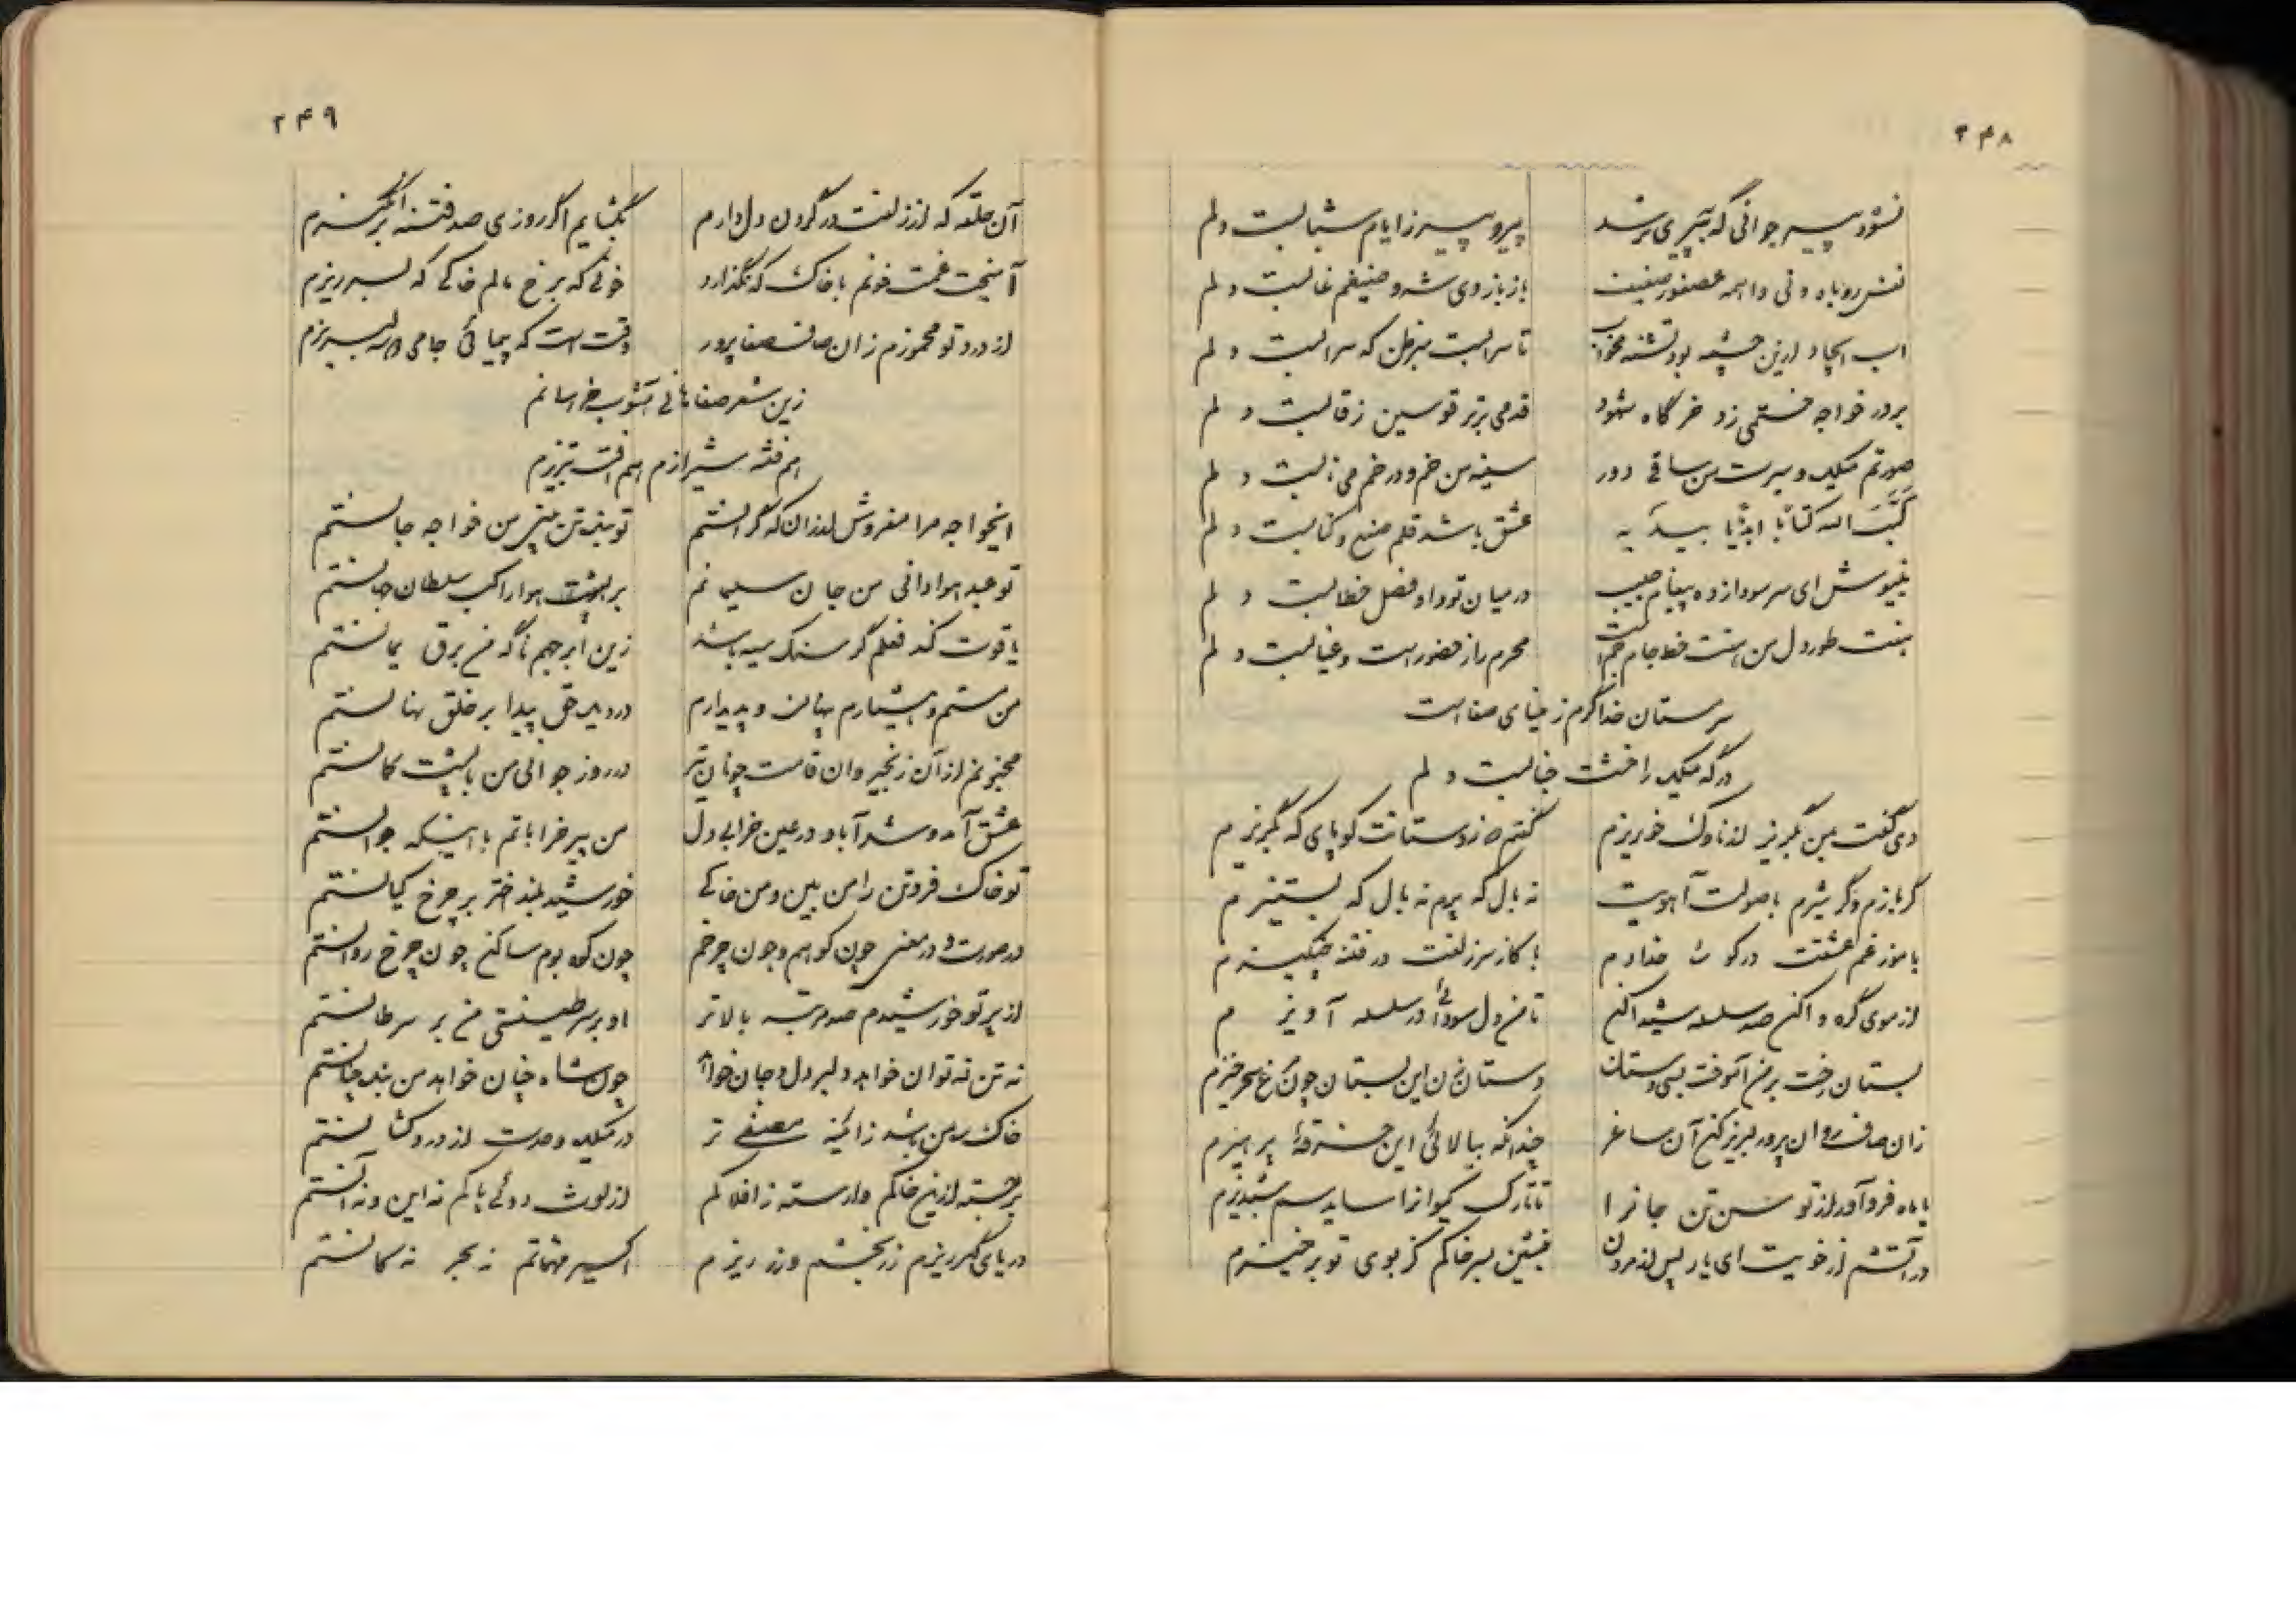 ۲۴۸
نشود پیر جوانی که به پیری برسد پیرو پیر ز ایام شبابست دلم
نفس روباه ودنی واهمه عصفور صفت باز بازوی شه و ضیغم غابست دلم
اب ایجاد ازین چشمه بود تشنه مخواب تا سرابست مبر ظن که سرابست دلم
بر در خواجه فستمی زد خرگاه شهود قدمی برتر قوسین ز قابست دلم
صورتم میکده و سیرت من ساقی دور سینه من خم و در خم می نابست دلم
کتب الله کتابا ابدیا بیدیه عشق باشد قلم صنع و کتابست دلم
بنیوش ای سر سودازده پیغام حبیب در میان تو و او فصل خطابست دلم
هفت طور دل من هفت خط جام جم است محرم راز حضور است و غیابست دلم
سرمستان خدا گرم ز مینای صفا است
درگه میکده را خشت جنابست دلم
دی گفت بمن بگریز از ناوک خونریزم گفتم که ز دستانت کو پای که بگریزم
گر بازم و گر شیرم با صولت آهویت نه بال که پرم نه یال که بستیزم
با موز غم عشقت در کوی خدادم با کاز سر زلفت در فتنه چنگیزم
از موی گره واکن صد سلسله شیدا کن تا من دل سودائی در سلسله آویزم
بستان رخت بر من آموخت بسی دستان دستان زن این بستان چون مرغ سحرخیزم
زان صاف روان پرور لبریز کن آن ساغر چندانکه بیالائی این خرقه پرهیزم
با ماه فرو آمد از توسن تن جانرا تا تارک کیوانرا ساید سم شبدیزم
در آتشم از خویت ای یار پس از مردن بنشین بسر خاکم کز بوی تو برخیزم
۲۴۹
آن حلقه که از زلفت در گردن دل دارم بگشایم اگر روزی صد فتنه برانگیزم
آمیخت غمت خونم با خاک که نگذارد خونی که برخ مالم خاکی که بسر ریزم
از درد تو مخمورم زان صاف صفا پرور وقت است که پیمائی جامی دو سه لبریزم
زین شعر صفاهانی آشوب خراسانم
هم فتنه شیرازم هم افت تبریزم
ایخواجه مرا مفروش ارزان که گرانستم تو بنده تن میر من خواجه جانستم
تو عبد هوادانی من جان سلیمانم بر پشت هوا راکب سلطان جهانستم
یاقوت کند لعلم گر سنگ سیه باشد زین ابر جهم ناگه من برق یمانستم
من مستم و هشیارم پنهان و پدیدارم در دیده حق پیدا بر خلق نهانستم
مجنونم از آن زنجیر وان قامت چونان تیر در روز جوانی من با پشت کمانستم
عشق آمد و شد آباد در عین خرابی دل من پیر خراباتم با اینکه جوانستم
تو خاک فروتن را من بین و من خاکی خورشید بلند اختر بر چرخ کیانستم
در صورت و در معنی چون کوهم و چون چرخم چون کوه بوم ساکن چون چرخ روانستم
از پرتو خورشیدم صد مرتبه بالاتر او بر سر طین مشتی من بر سرطانستم
نه تن نه توان خواهد دلبر دل و جان خواهد چون شاه چنان خواهد من بنده چنانستم
خاک ره من باشد ز ائینه مصفی تر در میکده وحدت از درد کشانستم
برجسته ازین خاکم وارسته ز افلاکم از لوث دوئی پاکم نه این و نه آنستم
دریای گهر ریزم زر بخشم و زر ریزم اکسیر مهماتم نه بحر نه کانستم